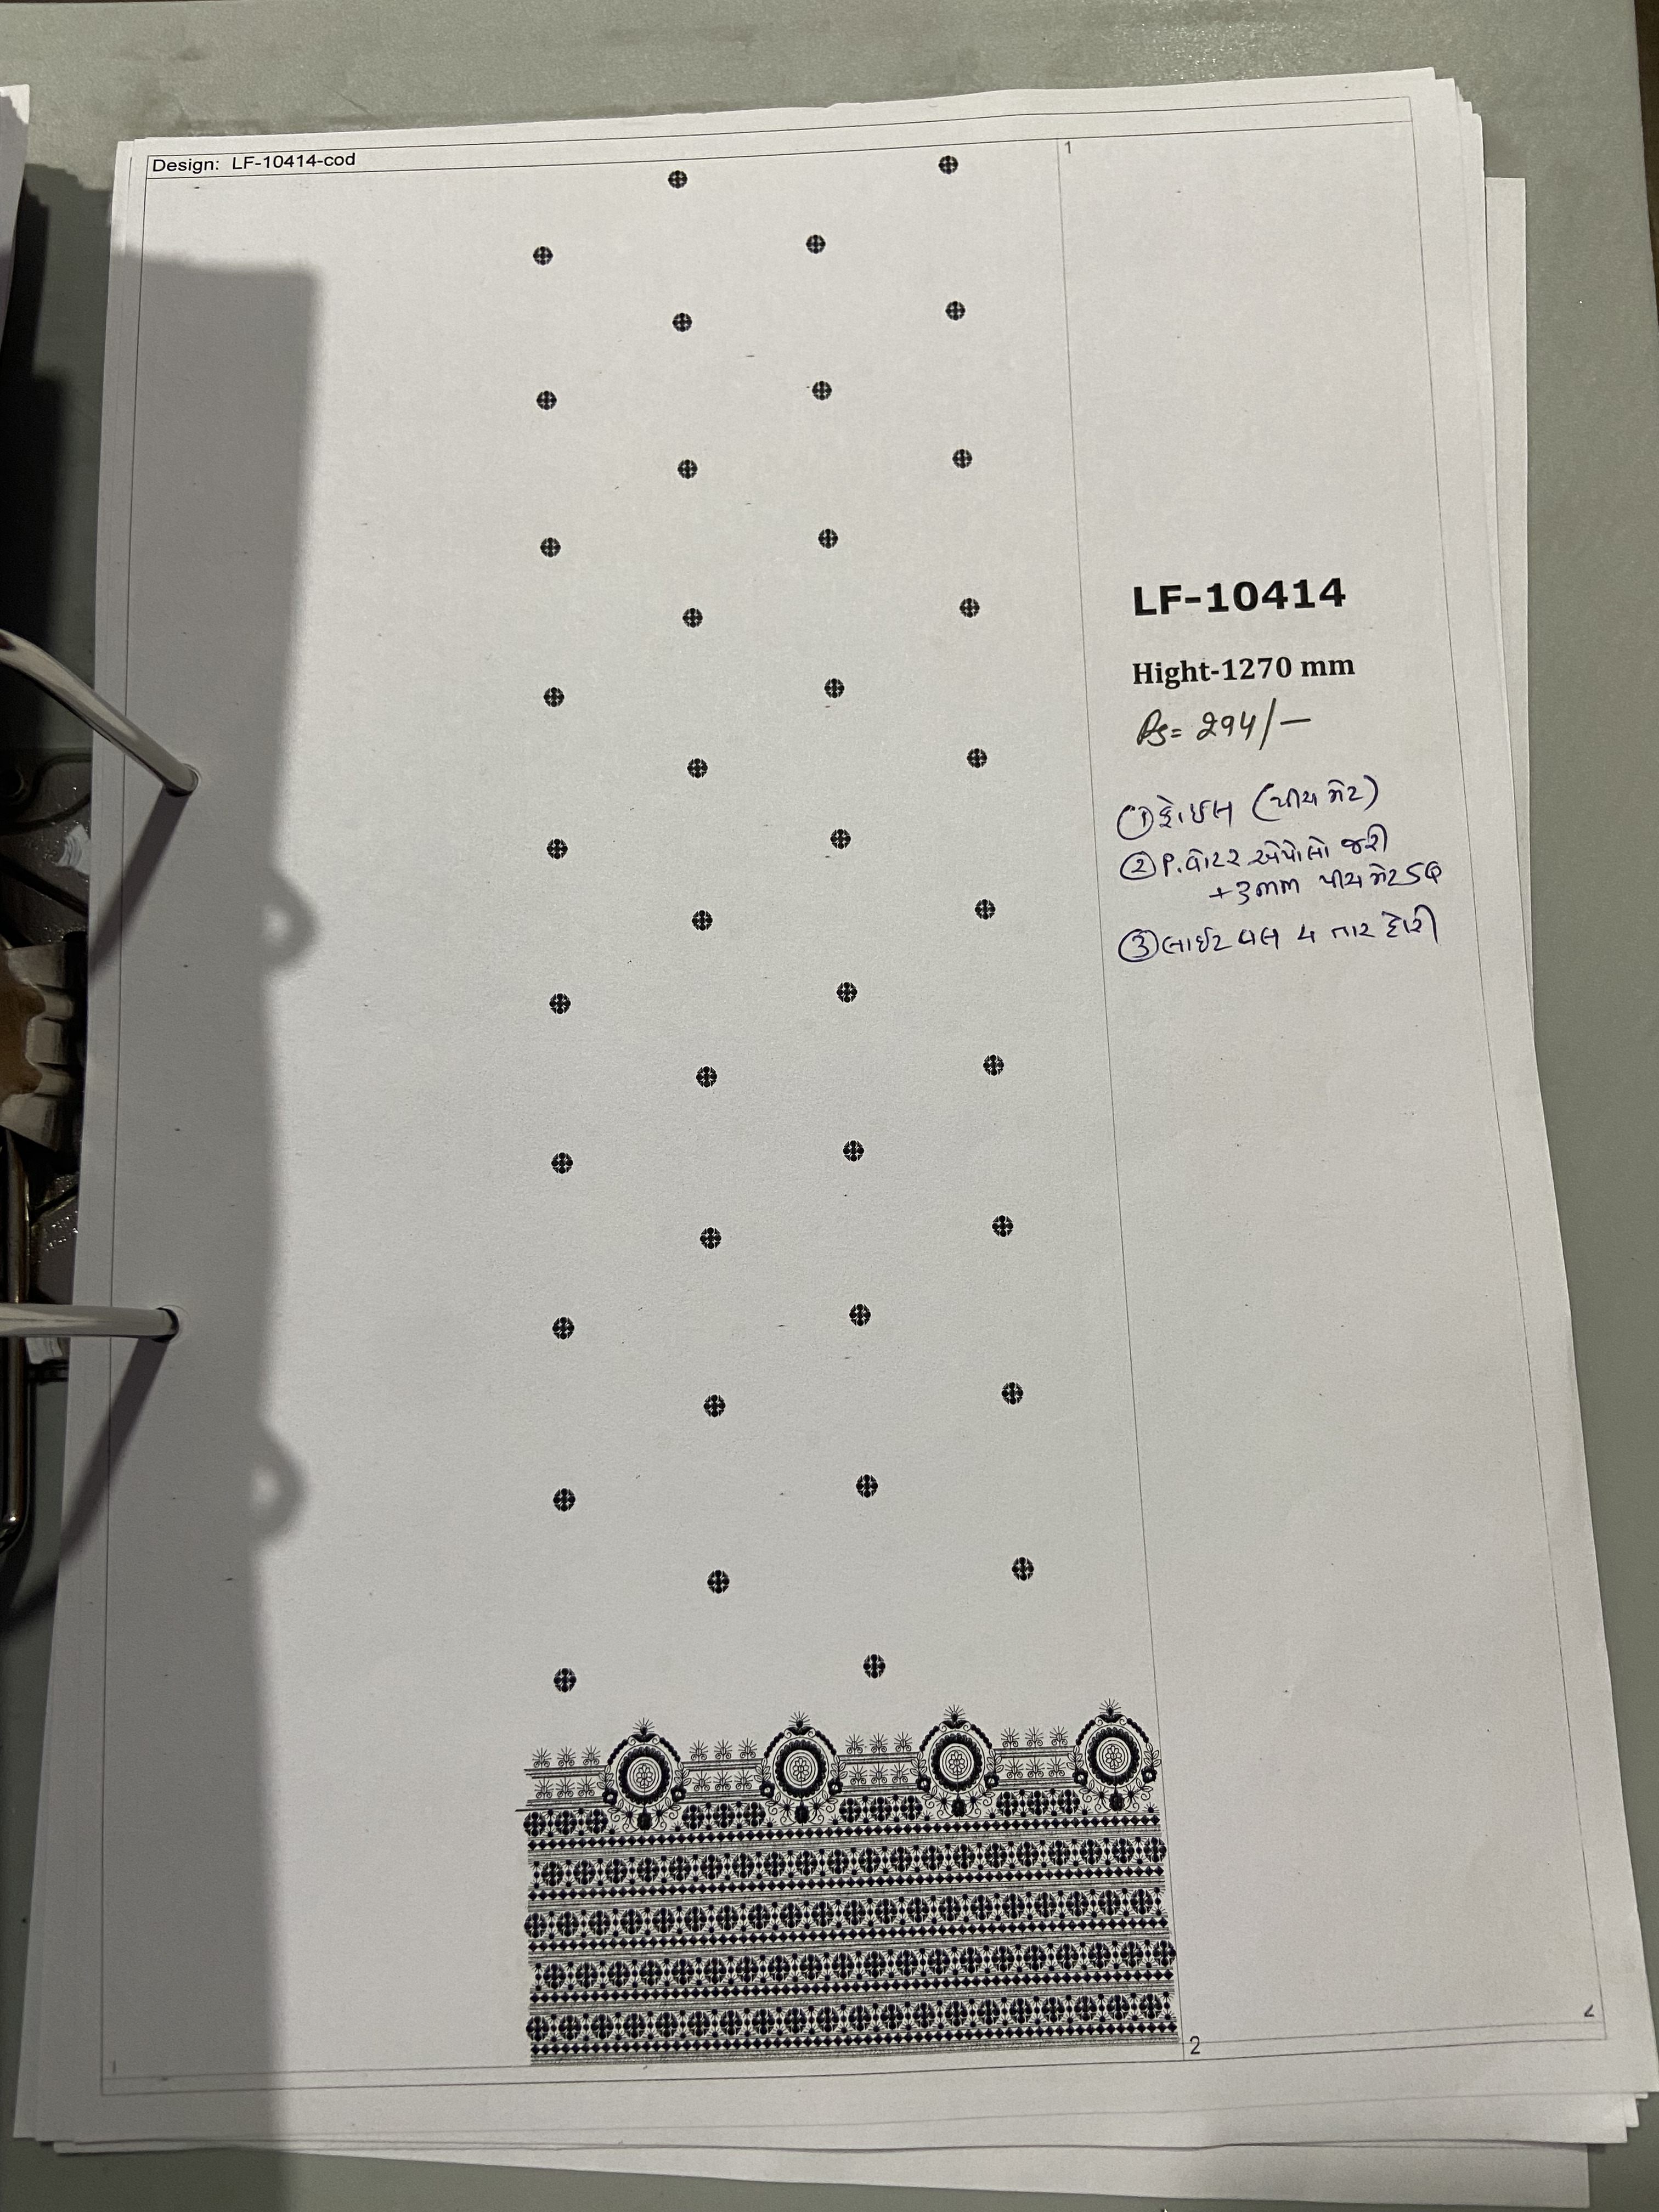 Design: LF-10414-cod
1
LF-10414
Hight-1270 mm
Rs= 294/-
① ફોઇલ (પીચ મેટ)
② P.વોટર એપોલો જરી
+ 3mm પીચ મેટ SQ
③ લાઈટ વલ 4 તાર દોરી
1
2
2